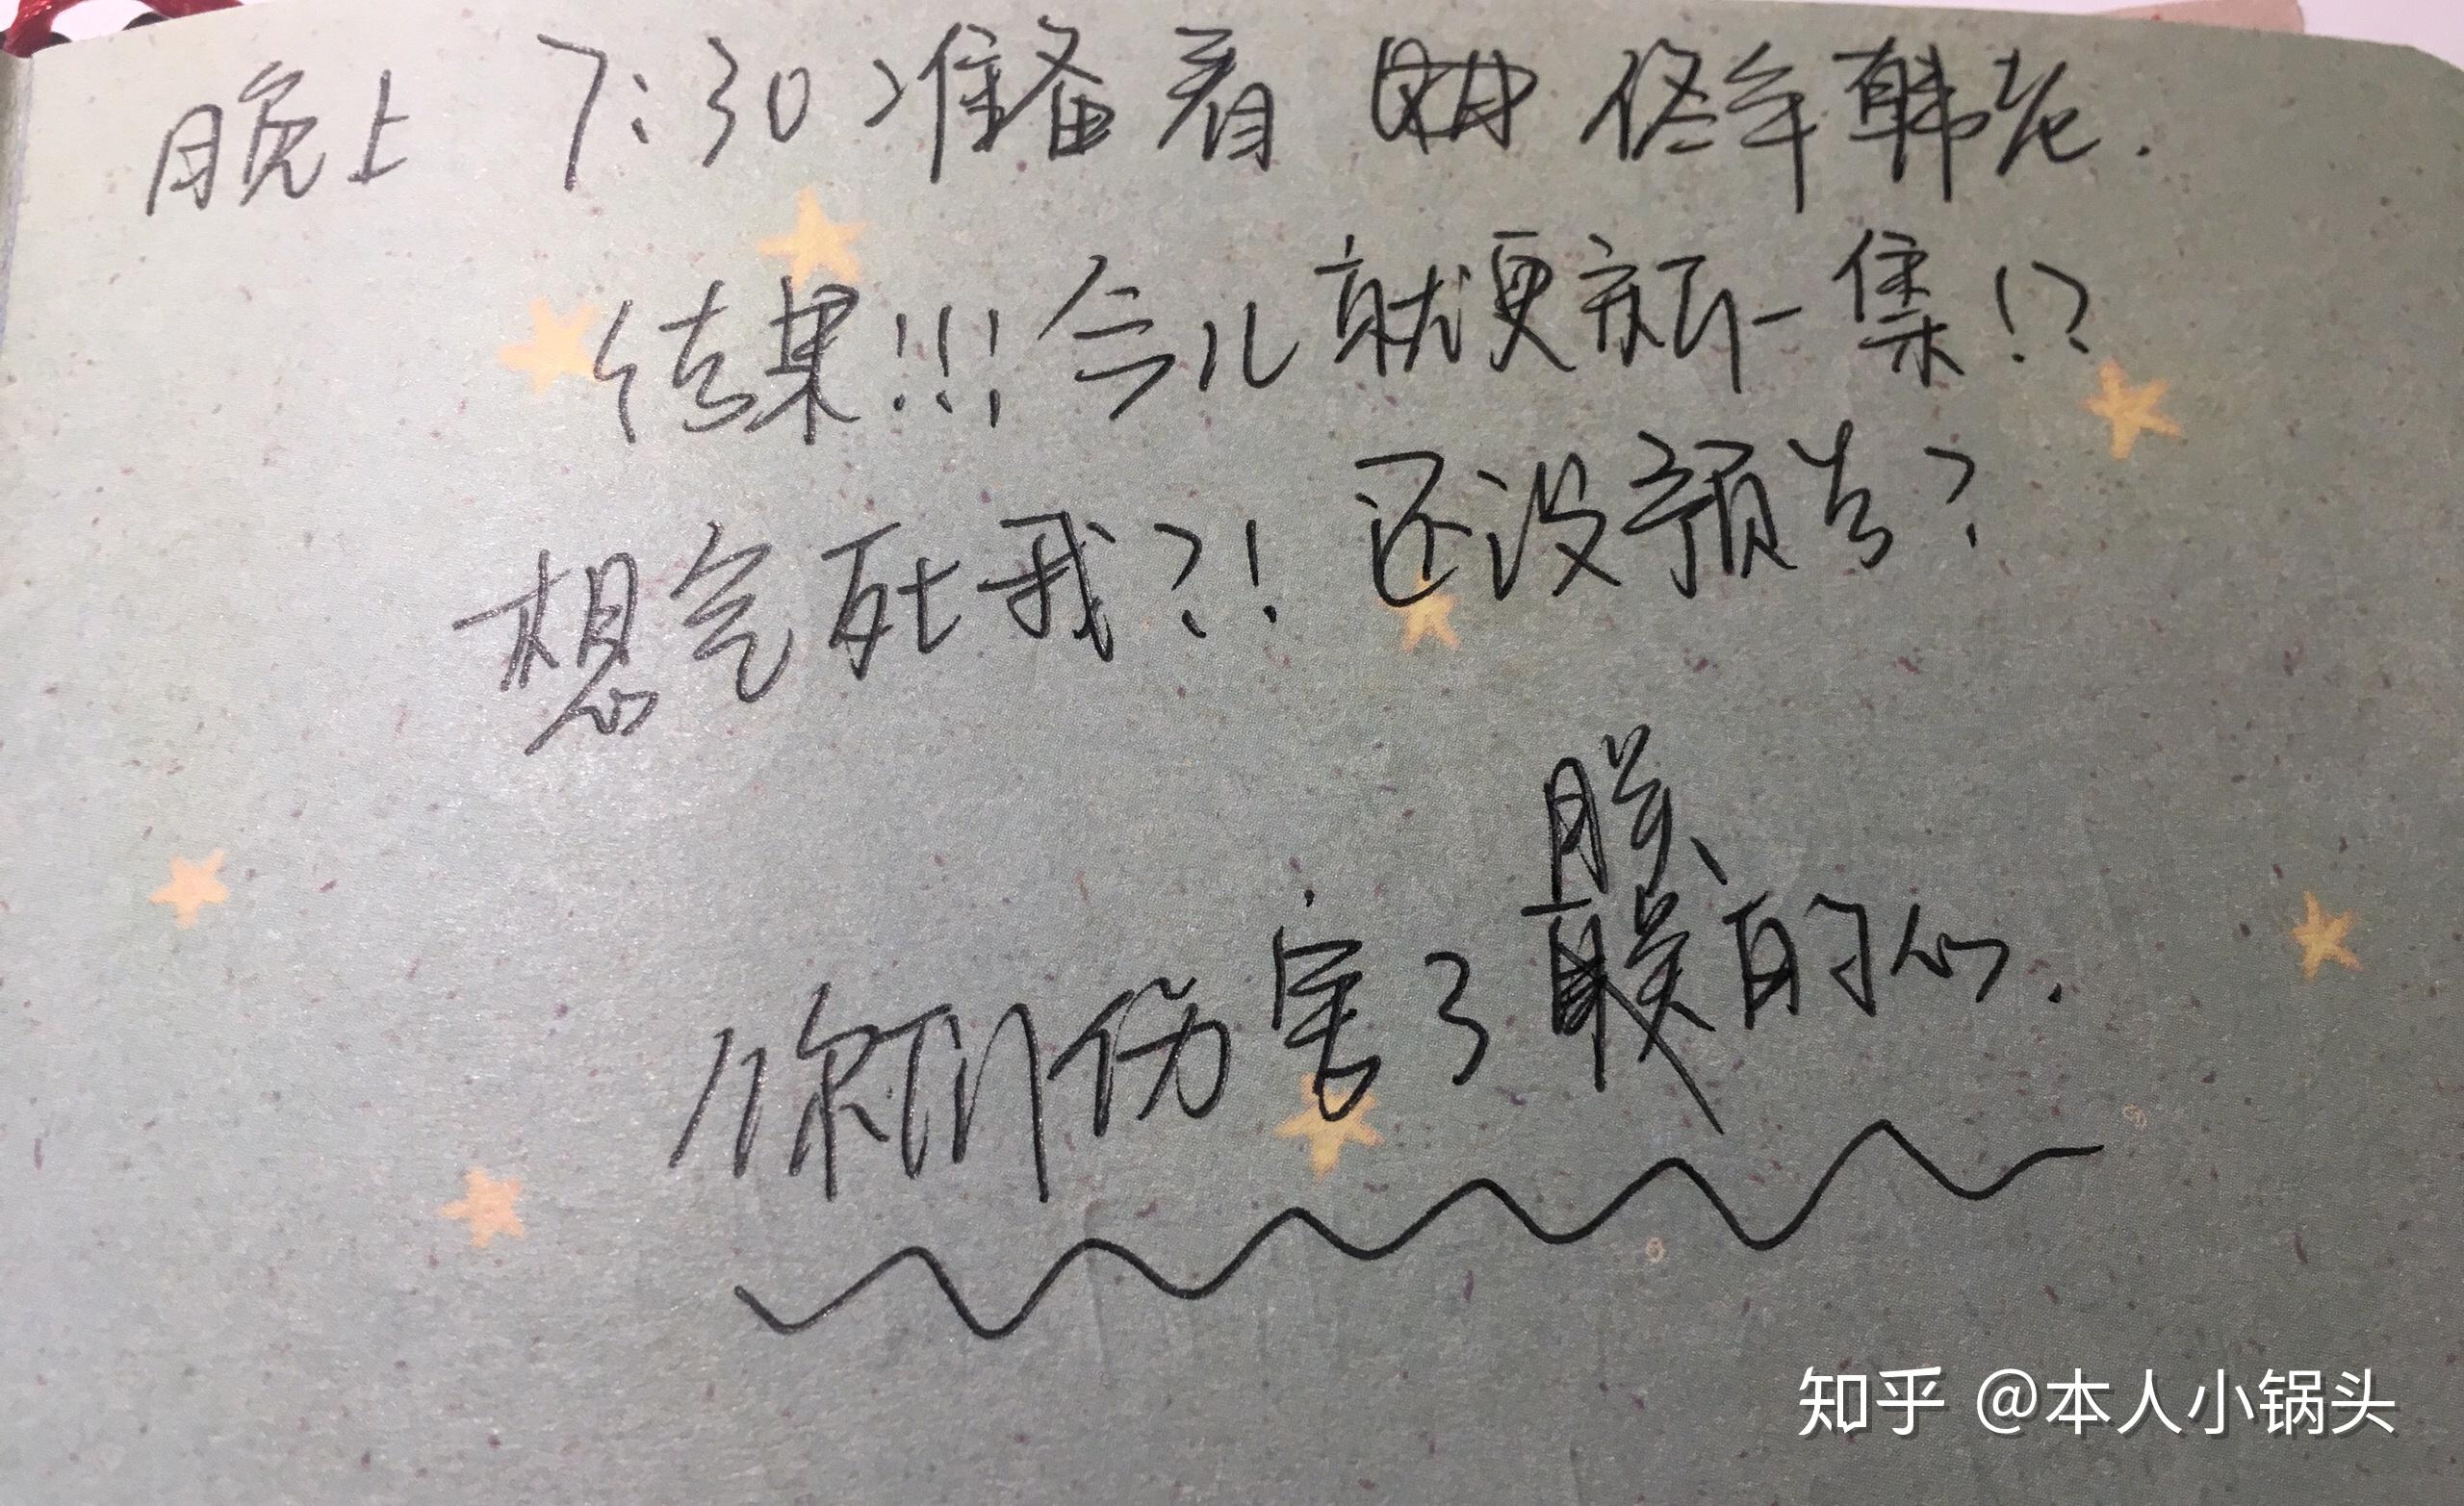 晚上 7:30准备看 佟年韩老.
结果!!!今儿就更新一集!?
想气死我?! 还没预告?
朕
你们伤害了朕的心.
知乎 @本人小锅头